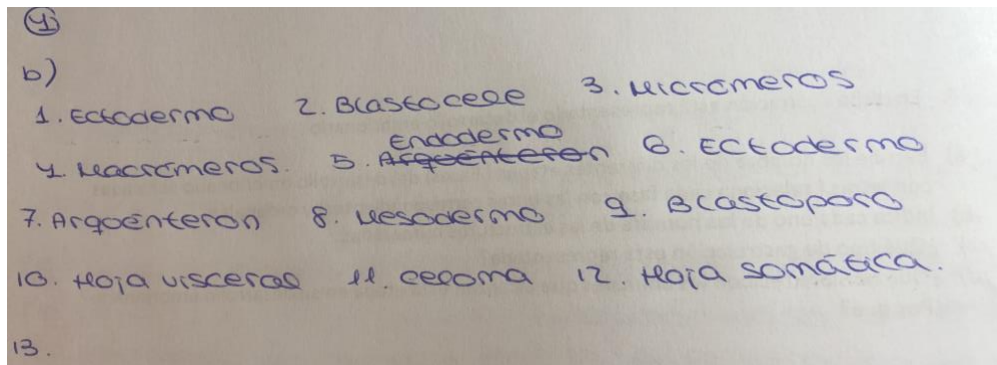 4)
b)
1. Ectodermo 2. Blastocele 3. Micrómeros
4. Macrómeros. 5. Arquénteron Endodermo 6. Ectodermo
7. Arquénteron 8. Mesodermo 9. Blastoporo
10. Hoja visceral 11. celoma 12. Hoja somática.
13.